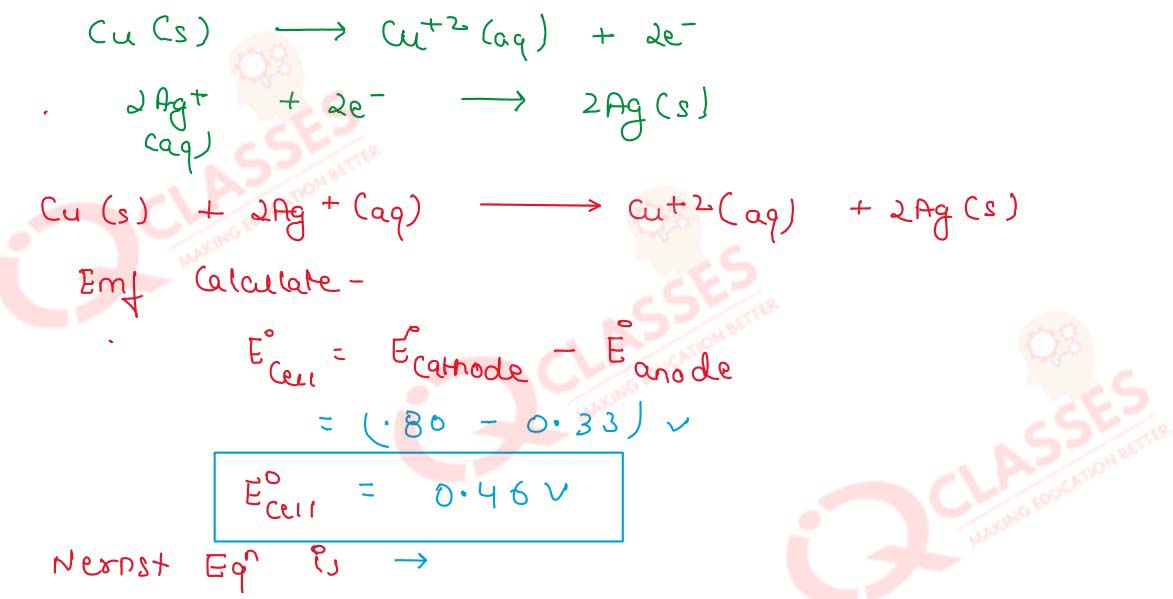 Cu (s) ⟶ Cu⁺² (aq) + 2e⁻
2Ag⁺ (aq) + 2e⁻ ⟶ 2Ag (s)
Cu (s) + 2Ag⁺ (aq) ⟶ Cu⁺² (aq) + 2Ag (s)
Emf Calculate -
E°Cell = E°Cathode - E°anode
= (.80 - 0.33) v
E°Cell = 0.46 v
Nernst Eqⁿ is →
IQ CLASSES
MAKING EDUCATION BETTER
IQ CLASSES
MAKING EDUCATION BETTER
IQ CLASSES
MAKING EDUCATION BETTER